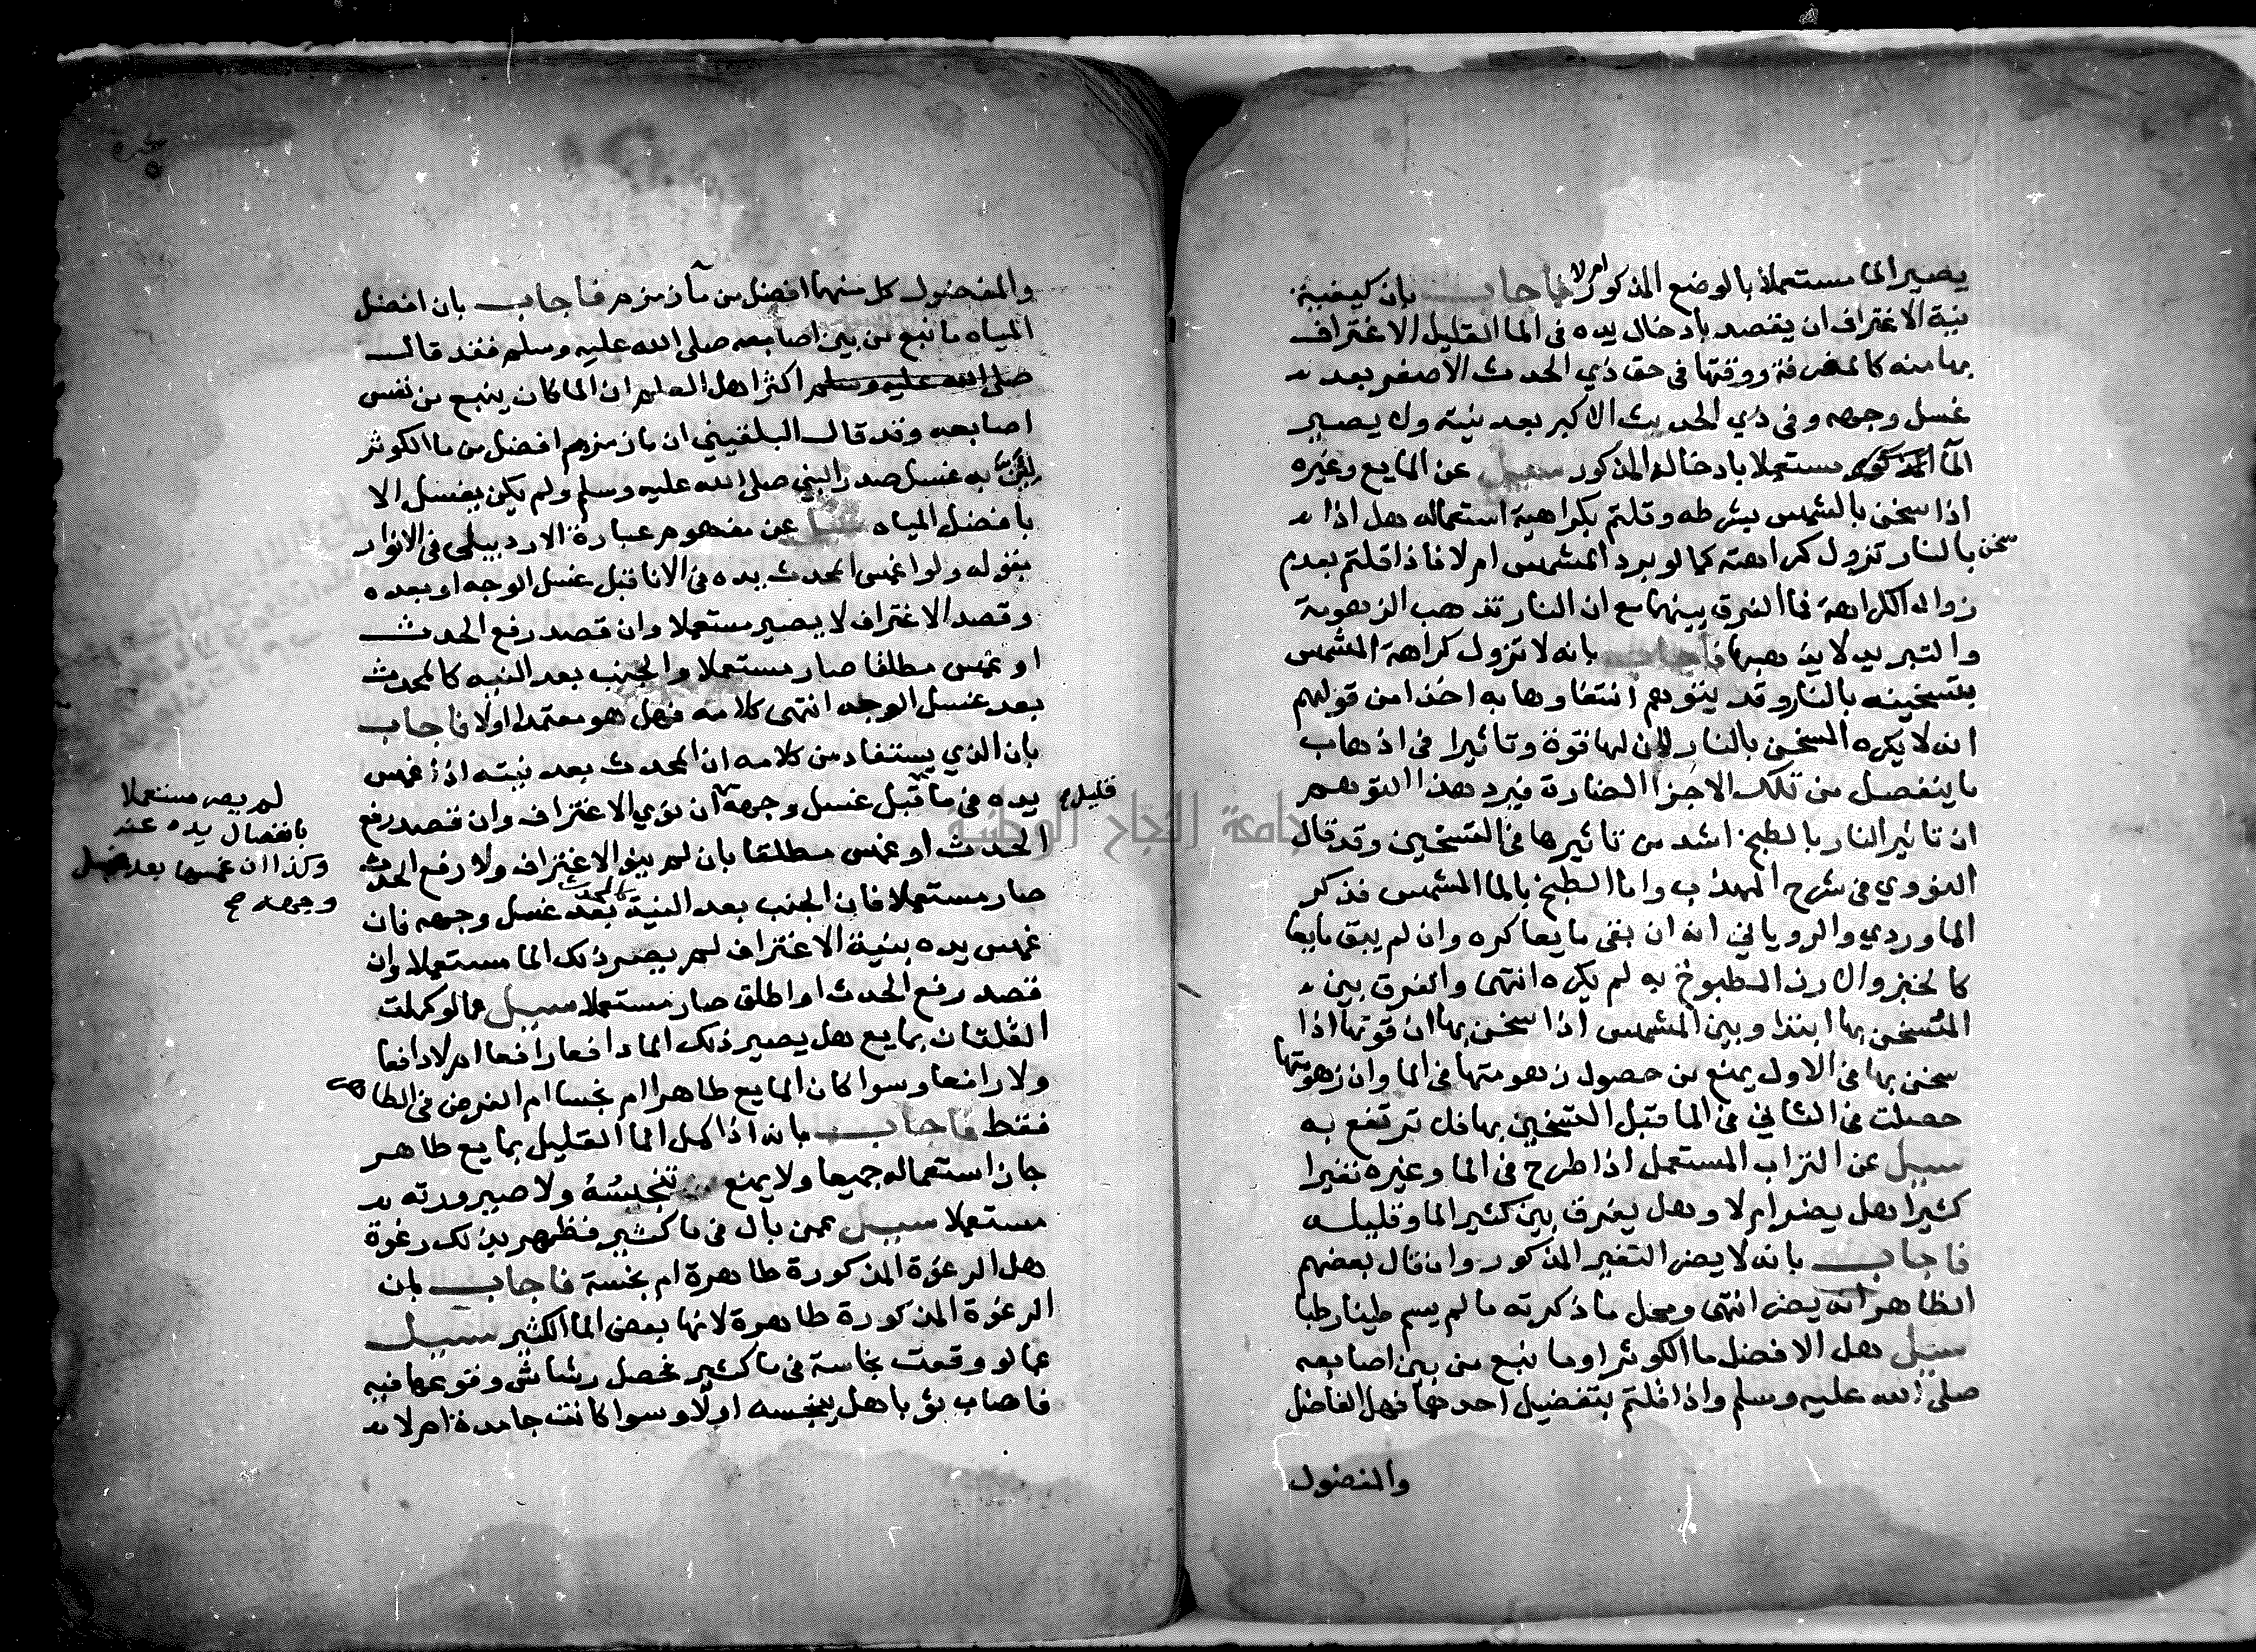 يصير الما مستعملا بالوضع المذكور ام لا فاجاب بان كيفية
نية الاغتراف ان يقصد بادخال يده في الما القليل الاغتراف
بها منه كالمغرفة ووقتها في حق ذي الحدث الاصغر بعد
غسل وجهه وفي ذي الحديث الاكبر بعد نيته ولا يصير
الما المذكور مستعملا بادخاله المذكور سيل عن المايع وغيره
اذا سخن بالشمس بشرطه وقلتم بكراهية استعماله هل اذا
سخن بالنار تزول كراهته كما لو برد المشمس ام لا فاذا قلتم بعدم
زواله الكراهة فما الفرق بينهما مع ان النار تذهب الزهومة
والتبريد لا يذهبها فاجاب بانه لا تزول كراهة المشمس
بتسخينه بالنار وقد يتوهم انتفاوها به اخذا من قولهم
انه لا يكره المسخن بالنار لان لها قوة وتاثيرا في اذهاب
ما ينفصل من تلك الاجزا الضارة فيرد هذا التوهم
ان تاثير النار بالطبخ اشد من تاثيرها في التسخين وقد قال
النووي في شرح المهذب واما الطبخ بالما المشمس فذكر
الماوردي والروياني انه ان بقى مايعا كره وان لم يبق مايعا
كالخبز والارز المطبوخ به لم يكره انتهى والفرق بين
المسخن بها ابتدا وبين المشمس اذا سخن بها ان قوتها اذا
سخن بها في الاول يمنع من حصول زهومتها في الما وان زهومتها
حصلت في الثاني في الما قبل التسخين بها فلا ترتفع به
سيل عن التراب المستعمل اذا طرح في الما وغيره تغيرا
كثيرا هل يضر ام لا وهل يفرق بين كثير الما وقليله
فاجاب بانه لا يضر التغير المذكور وان قال بعضهم
الظاهر انه يضر انتهى ومحل ما ذكرته ما لم يسم طينا رطبا
سيل هل الافضل ما الكوثر او ما نبع من بين اصابعه
صلى الله عليه وسلم واذا قلتم بتفضيل احدهما فهل الفاضل
والمفضول
والمفضول كل منهما افضل من ما زمزم فاجاب بان افضل
المياه ما نبع من بين اصابعه صلى الله عليه وسلم فقد قال
صلى الله عليه وسلم اكثر اهل العلم ان الما كان ينبع من نفس
اصابعه وقد قال البلقيني ان ما زمزم افضل من ما الكوثر
به غسل صدر النبي صلى الله عليه وسلم ولم يكن يغسل الا
بافضل المياه سيل عن مفهوم عبارة الاردبيلى في الانوار
بقوله ولو اغمس المحدث يده في الانا قبل غسل الوجه او بعده
وقصد الاغتراف لا يصير مستعملا وان قصد رفع الحدث
او غمس مطلقا صار مستعملا والجنب بعد النيه كالمحدث
بعد غسل الوجه انتهى كلامه فهل هو معتمد اولا فاجاب
بان الذي يستفاد من كلامه ان المحدث بعد نيته اذا غمس
يده في ما قبل غسل وجهه ان نوي الاغتراف وان قصد رفع
قليل
الحدث او غمس مطلقا بان لم ينو الاغتراف ولا رفع الحدث
لم يصر مستعملا
بانفصال يده عنه
وكذا ان غمسها بعد غسل
وجهه صح
صار مستعملا فان الجنب بعد النية كالمحدث بعد غسل وجهه فان
غمس يده بنية الاغتراف لم يصر ذلك الما مستعملا وان
قصد رفع الحدث او اطلق صار مستعملا سيل عما لو كملت
القلتان بمايع هل يصير ذلك الما دافعا رافعا ام لا دافعا
ولا رافعا وسوا كان المايع طاهرا ام نجسا ام الفرض في الطاهر
فقط فاجاب بانه اذا كمل الما القليل بمايع طاهر
جاز استعماله جميعا ولا يمنع من تنجيسه ولا صيرورته
مستعملا سيل عمن بال في ما كثير فظهر بذلك رغوة
هل الرغوة المذكورة طاهرة ام نجسة فاجاب بان
الرغوة المذكورة طاهرة لانها بعض الما الكثير سيل
عما لو وقعت نجاسة في ما كثير فحصل رشاش وقوعها فيه
فاصاب ثوبا هل ينجسه اولا وسوا كانت جامدة ام لا
جامعة النجاح الوطنية